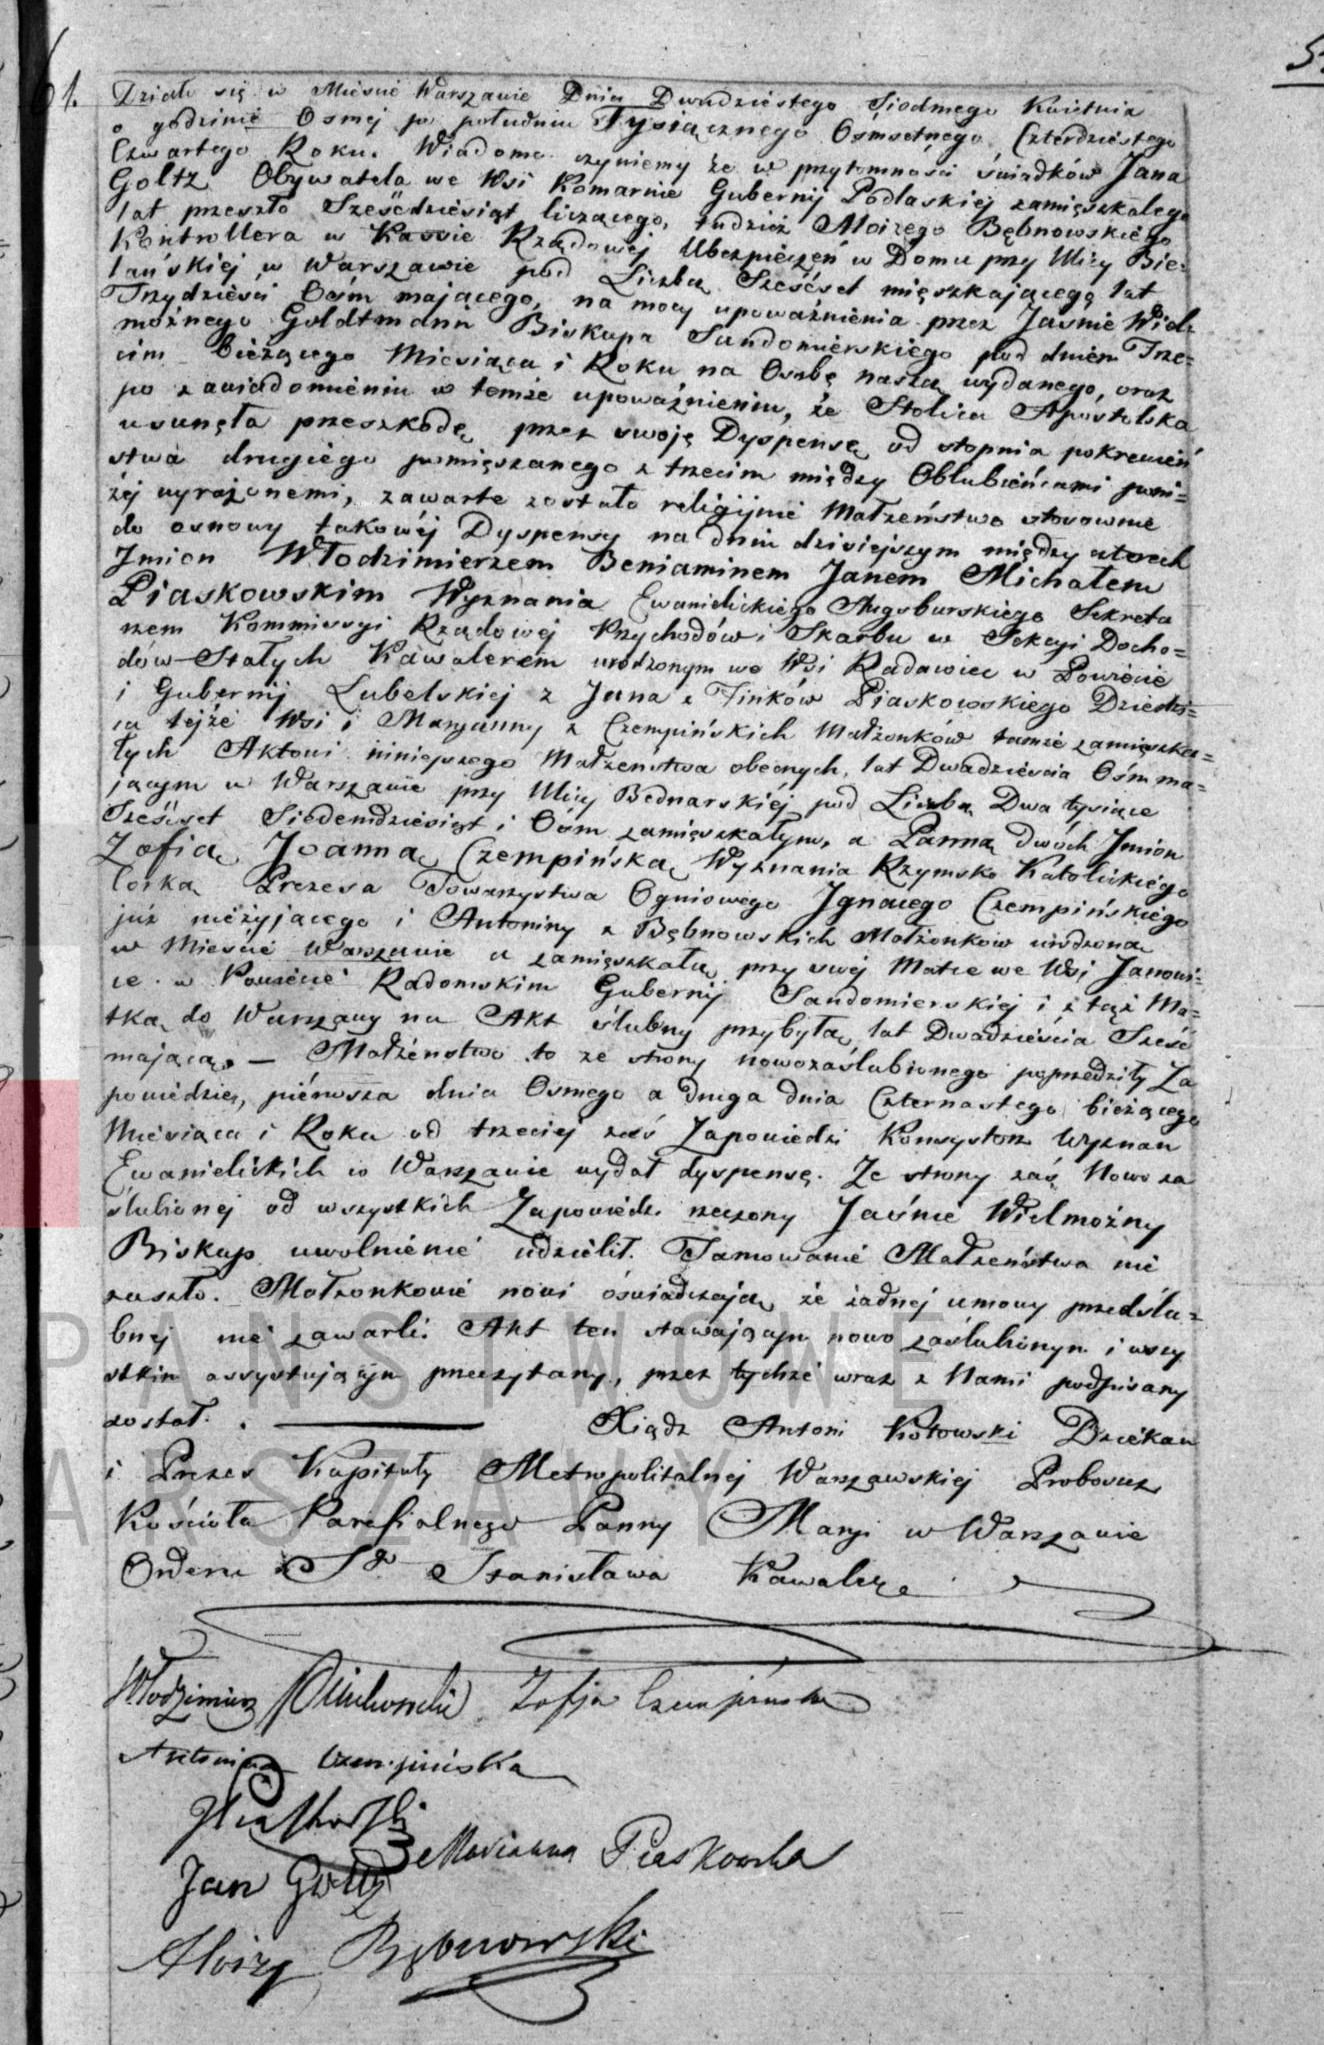 61.
Działo się w Mieście Warszawie Dnia Dwudziestego Siodmego Kwietnia
o godzinie Osmej po południu Tysiącznego Ośmsetnego Czterdziestego
Czwartego Roku. Wiadomo czyniemy że w przytomności świadków Jana
Goltz Obywatela we Wsi Komarnie Gubernij Podlaskiej zamięszkałego
lat przeszło Sześćdziesiąt liczącego, tudzież Aloizego Bębnowskiego
Kontrollera w Kassie Rządowej Ubezpieczeń w Domu przy Ulicy Bie-
lańskiej w Warszawie pod Liczbą Sześćset mięszkającego lat
Trzydzieści Ośm mającego, na mocy upoważnienia przez Jaśnie Wiel-
możnego Goldtmann Biskupa Sandomierskiego pod dniem Trze-
cim bieżącego Miesiąca i Roku na Osobę naszą wydanego, oraz
po zawiadomieniu w temże upoważnieniu, że Stolica Apostolska
usunęła przeszkodę przez swoję Dyspensę od stopnia pokrewień
stwa drugiego pomięszanego z trzecim między Oblubieńcami poni-
żej wyrażonemi, zawarte zostało religijnie Małżeństwo stosownie
do osnowy takowéj Dyspensy na dniu dzisiejszym między czterech
Jmion Włodzimierzem Beniaminem Janem Michałem
Piaskowskim Wyznania Ewanielickiego Augsburskiego Sekreta
rzem Kommissyi Rządowej Przychodów i Skarbu w Sekcyi Docho-
dów Stałych Kawalerem urodzonym we Wsi Radawiec w Powiecie
i Gubernij Lubelskiej z Jana z Finków Piaskowskiego Dziedzi-
ca tejże Wsi i Maryanny z Czempińskich Małżonków tamże zamięszka-
łych Aktowi niniejszego Małżeństwa obecnych, lat Dwadzieścia Ośm ma-
jącym w Warszawie przy Ulicy Bednarskiéj pod Liczbą Dwa tysiące
Sześćset Siedemdziesiąt i Ośm zamięszkałym, a Panną dwóch Jmion
Zofią Joanną Czempińską Wyznania Rzymsko Katolickiego
Corką Prezesa Towarzystwa Ogniowego Jgnacego Czempińskiego
już nieżyjącego i Antoniny z Bębnowskich Małżonkow urodzoną
w Mieście Warszawie a zamięszkałą przy swej Matce we Wsi Janowi-
ce w Powiecie Radomskim Gubernij Sandomierskiej i z tąż Ma-
tką do Warszawy na Akt ślubny przybyłą lat Dwadzieścia Sześć
mającą. — Małżeństwo to ze strony nowozaślubionego poprzedziły Za
powiedzie, piérwsza dnia Osmego a druga dnia Czternastego bieżącego
Miesiąca i Roku od trzeciej zaś Zapowiedzi Konsystorz Wyznan
Ewanielickich w Warszawie wydał dyspensę. Ze strony zaś Nowo za
ślubionej od wszystkich Zapowiedzi rzeczony Jaśnie Wielmożny
Biskup uwolnienie udzielił. Tamowanie Małżeństwa nie
zaszło. Małżonkowie nowi oświadczają że żadnej umowy przedślu-
bnej nie zawarli. Akt ten stawającym nowo zaślubionym i wszy
stkim assystującym przeczytany, przez tychże wraz z Nami podpisany
został. Xiądz Antoni Kotowski Dziekan
i Prezes Kapituły Metropolitalnej Warszawskiej Proboszcz
Kościoła Parafialnego Panny Maryi w Warszawie
Orderu Sgo Stanisława Kawaler
Włodzimierz Piaskowski Zofja Czempińska
Antonina Czempińska
Piaskowski
Marianna Piaskowska
Jan Goltz
Aloizy Bębnowski
PAŃSTWOWE
WARSZAWY